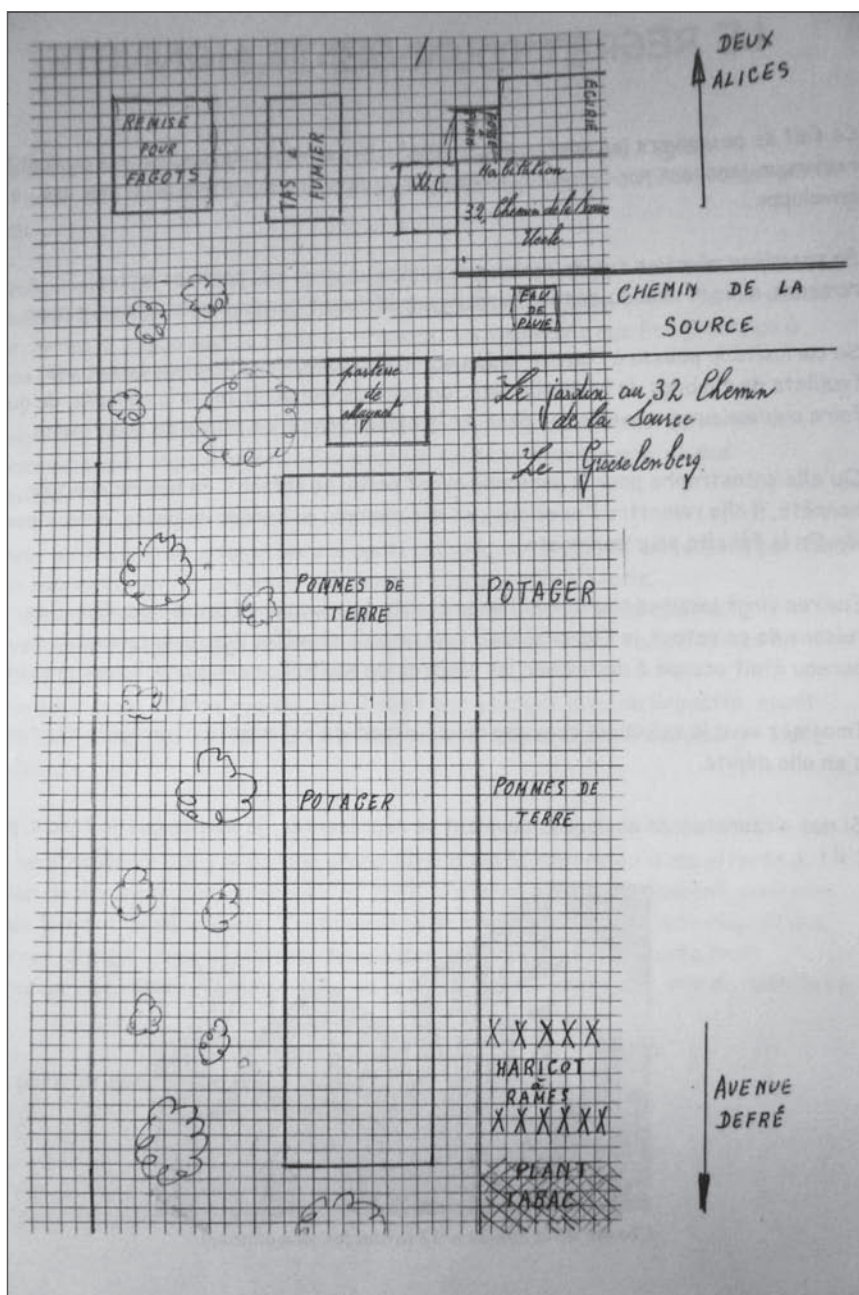 DEUX
ALICES
REMISE
POUR
FAGOTS
TAS à
FUMIER
ECURIE
W.C.
Habitation
32, Chemin de la Source
Uccle
EAU
DE
PLUIE
CHEMIN DE LA
SOURCE
parterre
de
Muguet
Le jardin au 32 Chemin
de la Source
Le Groeselenberg
POMMES DE
TERRE
POTAGER
POTAGER
POMMES DE
TERRE
X X X X X
HARICOT
à
RAMES
X X X X X X
PLANT
TABAC
AVENUE
DEFRÉ